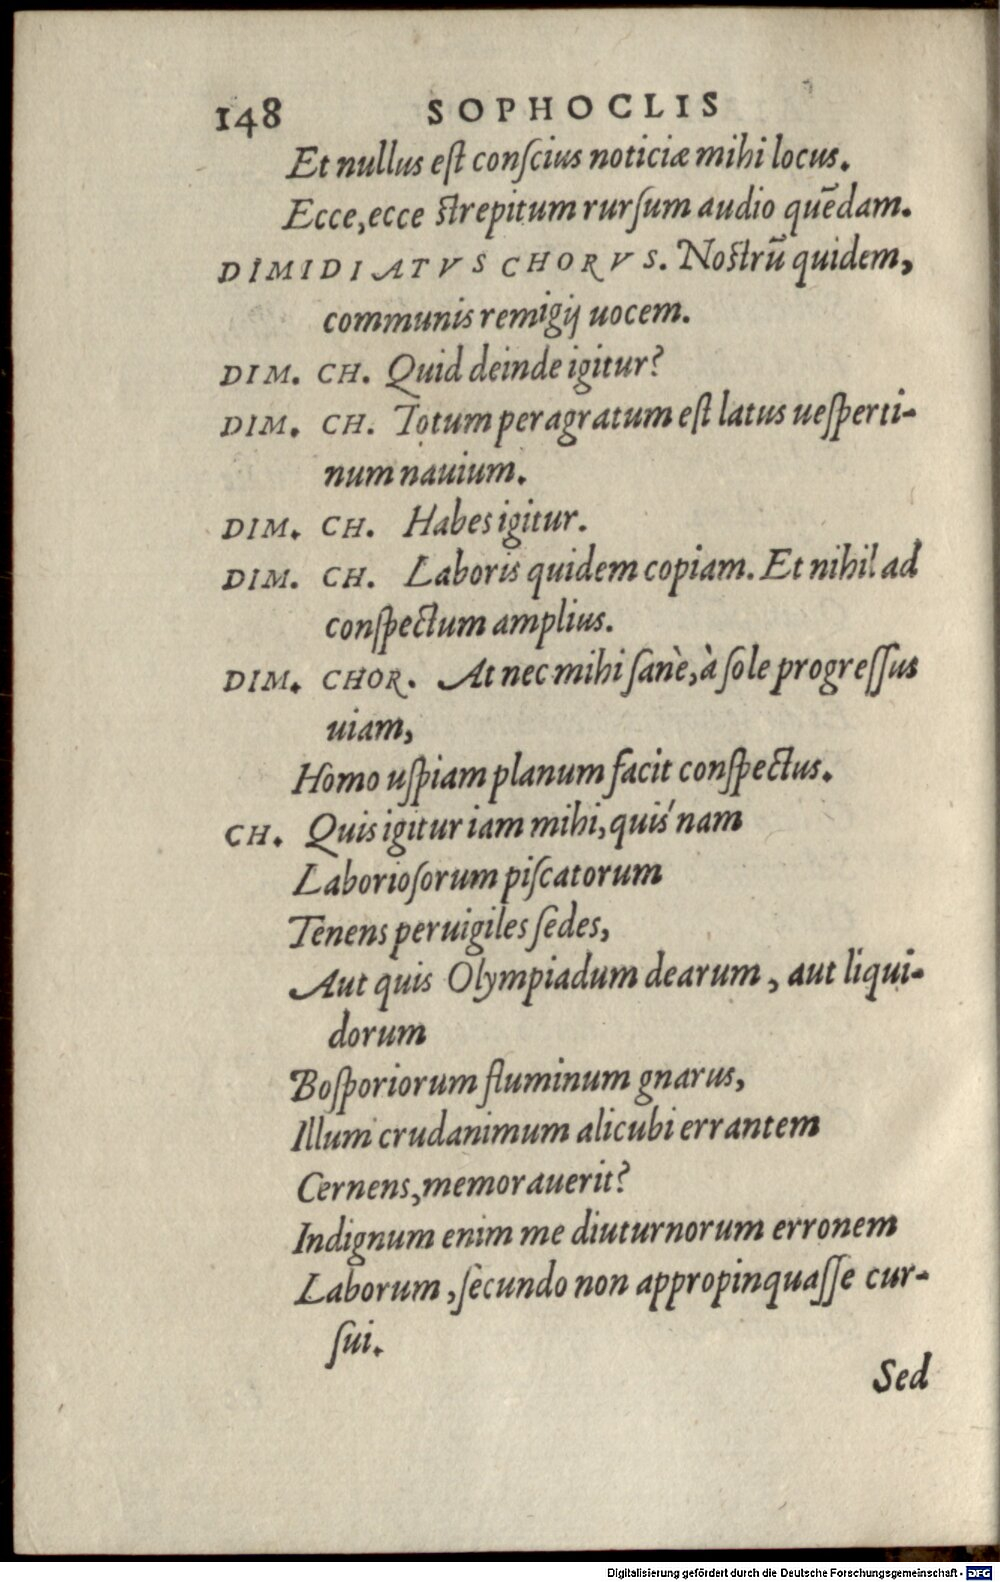 148 SOPHOCLIS
Et nullus eſt conſcius noticiæ mihi locus.
Ecce, ecce ſtrepitum rurſum audio quēdam.
DIMIDIATVS CHORVS. Noſtrū quidem,
communis remigij uocem.
DIM. CH. Quid deinde igitur?
DIM. CH. Totum peragratum eſt latus ueſperti-
num nauium.
DIM. CH. Habes igitur.
DIM. CH. Laboris quidem copiam. Et nihil ad
conſpectum amplius.
DIM. CHOR. At nec mihi ſanè, à ſole progreſſus
uiam,
Homo uſpiam planum facit conſpectus.
CH. Quis igitur iam mihi, quis´nam
Laborioſorum piſcatorum
Tenens peruigiles ſedes,
Aut quis Olympiadum dearum, aut liqui-
dorum
Boſporiorum fluminum gnarus,
Illum crudanimum alicubi errantem
Cernens, memorauerit?
Indignum enim me diuturnorum erronem
Laborum, ſecundo non appropinquaſſe cur-
ſui.
Sed
Digitalisierung gefördert durch die Deutsche Forschungsgemeinschaft - DFG